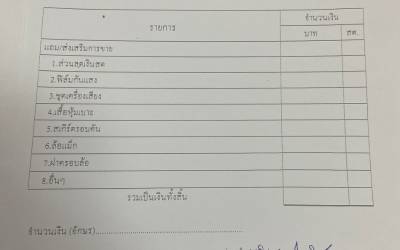 รายการ
จำนวนเงิน
บาท
สต.
แถม/ส่งเสริมการขาย
1.ส่วนลดเงินสด
2.ฟิล์มกันแสง
3.ชุดเครื่องเสียง
4.เสื้อหุ้มเบาะ
5.สเกิร์ตรอบคัน
6.ล้อแม็ก
7.ฝาครอบล้อ
8.อื่นๆ
รวมเป็นเงินทั้งสิ้น
จำนวนเงิน (อักษร)